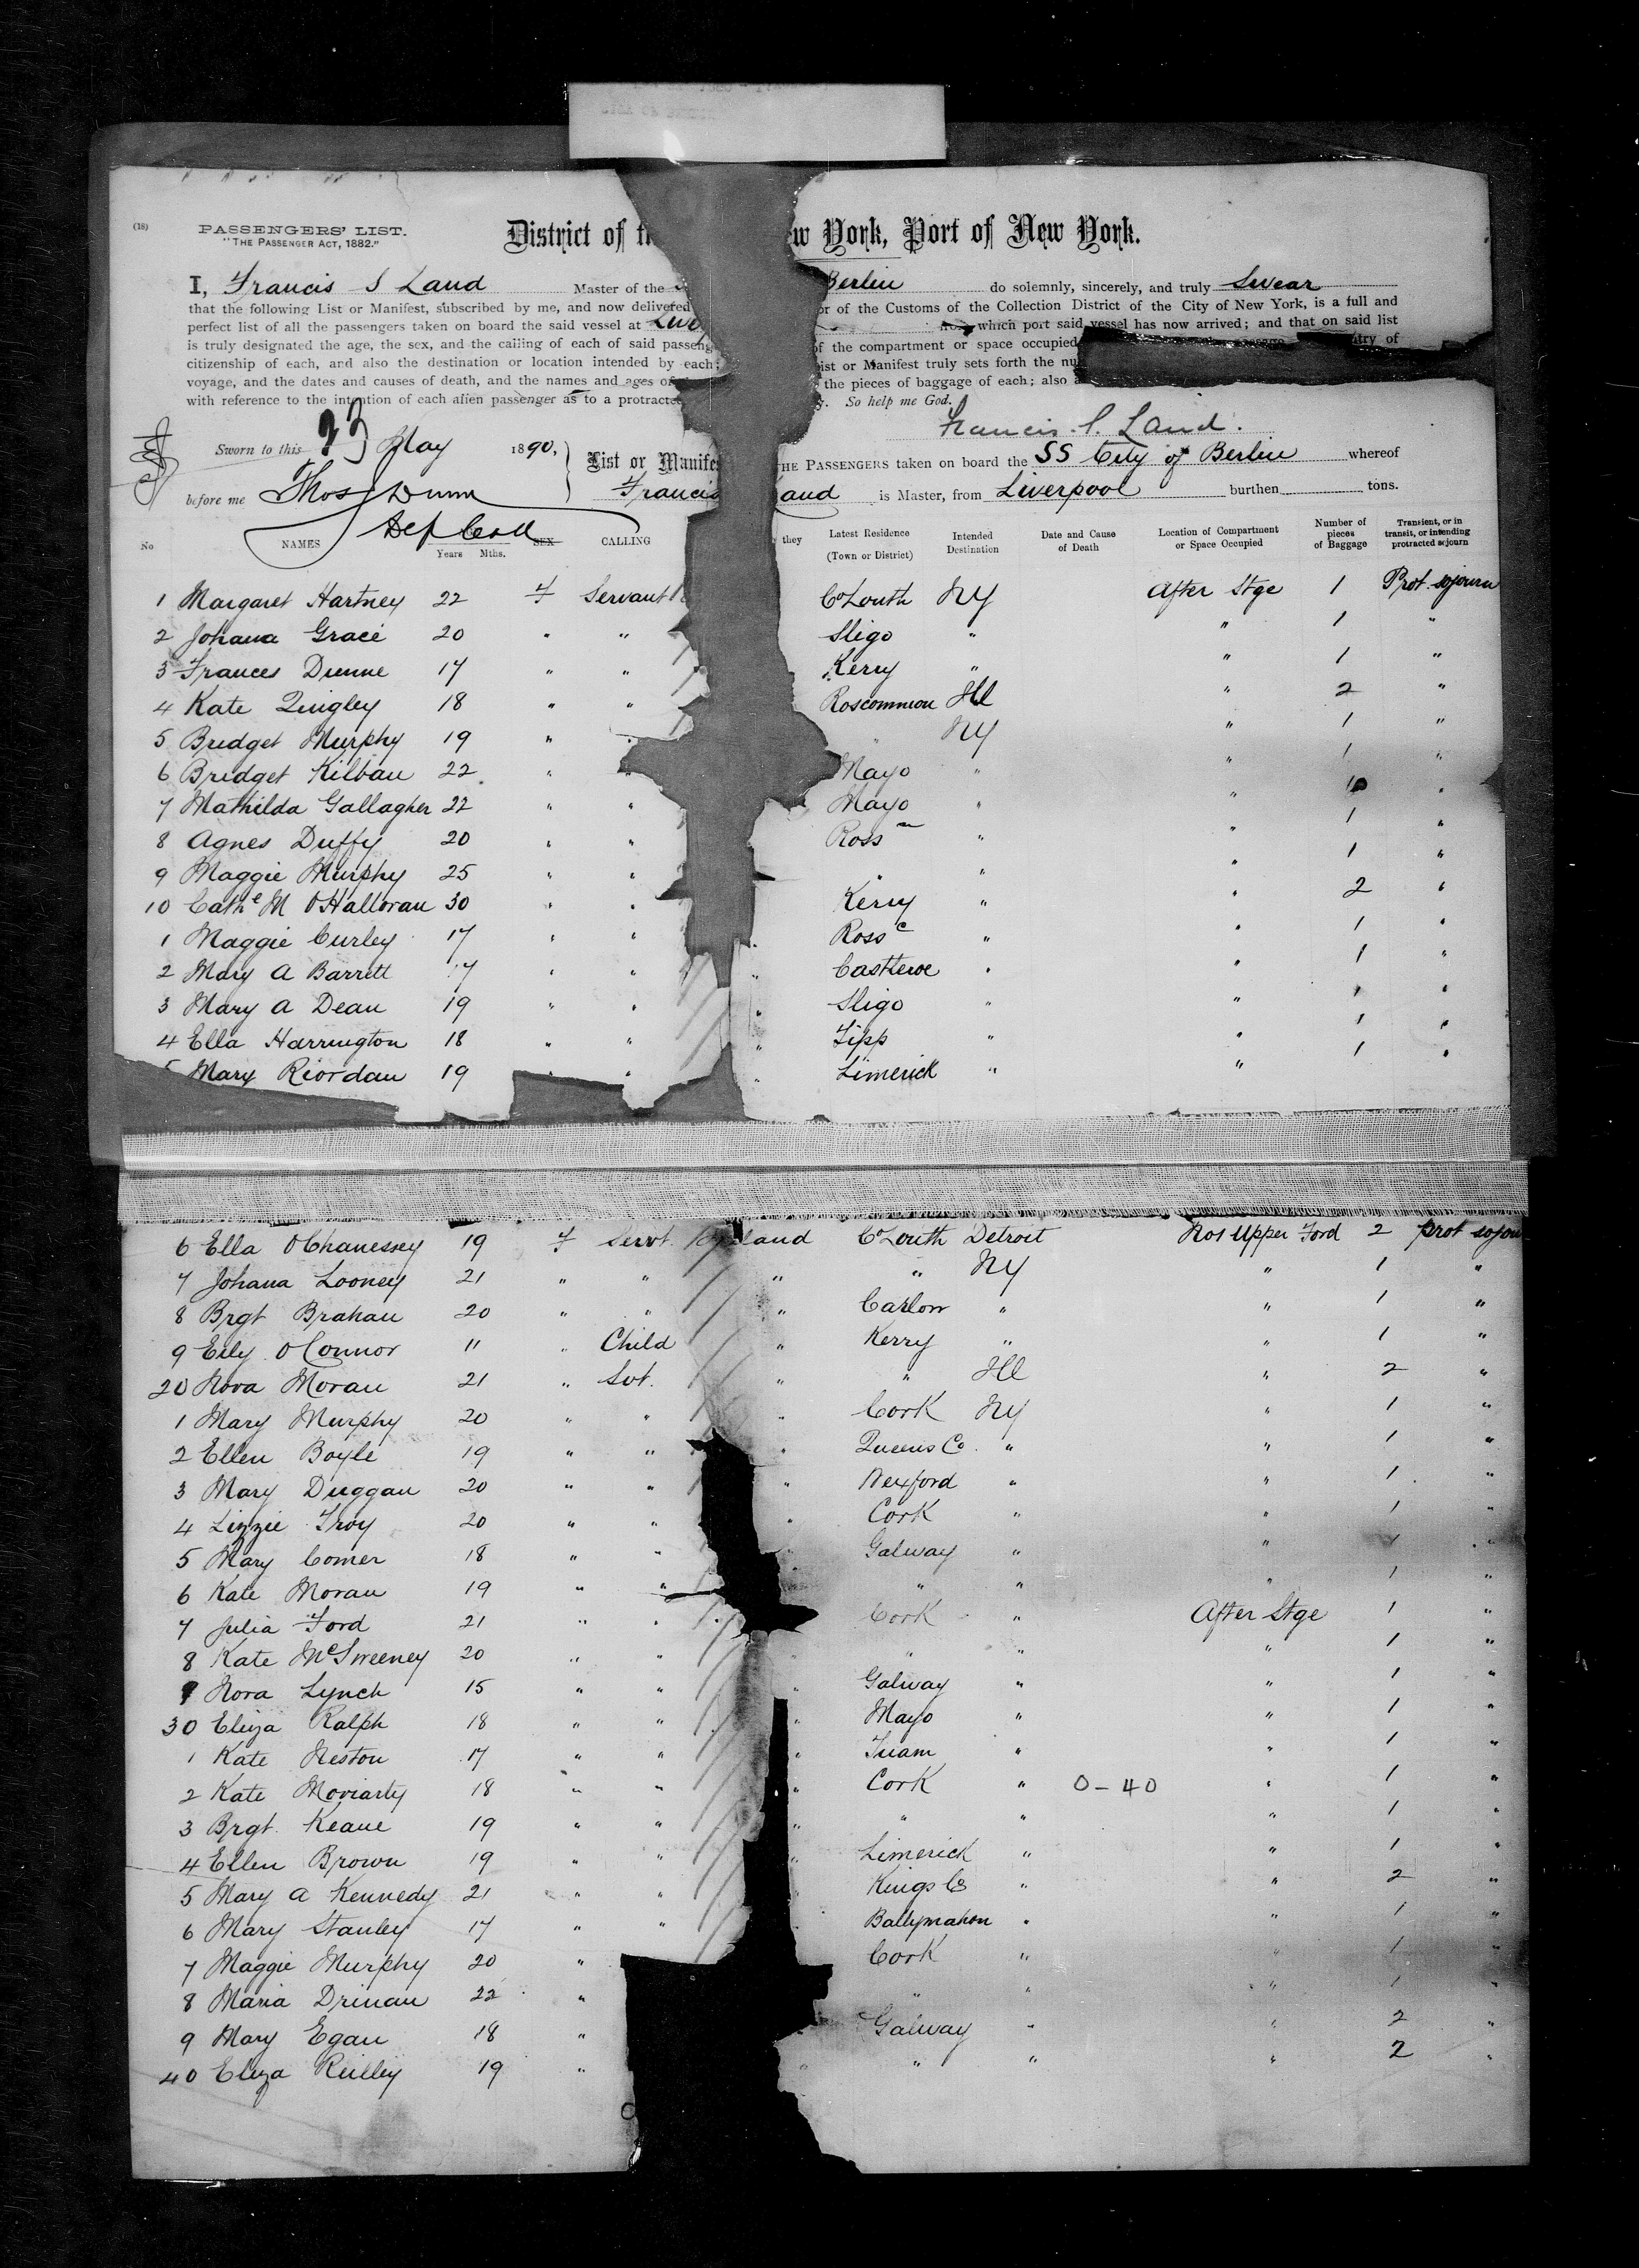 (18)
PASSENGERS' LIST.
"THE PASSENGER ACT, 1882."
District of th w York, Port of New York.
I, Francis S Land Master of the Berlin do solemnly, sincerely, and truly Swear
that the following List or Manifest, subscribed by me, and now delivered or of the Customs of the Collection District of the City of New York, is a full and
perfect list of all the passengers taken on board the said vessel at which port said vessel has now arrived; and that on said list
is truly designated the age, the sex, and the calling of each of said passeng of the compartment or space occupied
citizenship of each, and also the destination or location intended by each; ist or Manifest truly sets forth the nu
voyage, and the dates and causes of death, and the names and ages of the pieces of baggage of each; also a
with reference to the intention of each alien passenger as to a protracted So help me God.
Francis S. Land.
Sworn to this 23 May 1890, List or Manifes THE PASSENGERS taken on board the SS City of Berlin whereof
before me Thos Dunn Francis Land is Master, from Liverpool burthen tons.
Dep Coll
No NAMES Years Mths. SEX CALLING they Latest Residence (Town or District) Intended Destination Date and Cause of Death Location of Compartment or Space Occupied Number of pieces of Baggage Transient, or in transit, or intending protracted sojourn
1 Margaret Hartney 22 F Servant Co Louth NY After Stge 1 Prot. sojourn
2 Johana Grace 20 " " Sligo " " 1 "
3 Frances Dunne 17 " " Kerry " " 1 "
4 Kate Quigley 18 " " Roscommon Ill " 2 "
5 Bridget Murphy 19 " " " NY " 1 "
6 Bridget Kilban 22 " " Mayo " " 1 "
7 Mathilda Gallagher 22 " " Mayo " " "
8 Agnes Duffy 20 " " Ross " " 1 "
9 Maggie Murphy 25 " " " " " 1 "
10 Cathe M O'Halloran 30 " " Kerry " " 2 "
1 Maggie Curley 17 " " " Ross c " " 1 "
2 Mary A Barrett 17 " " " " " 1 "
3 Mary A Dean 19 " " " Sligo " " 1 "
4 Ella Harrington 18 " " " Tipp " " 1 "
5 Mary Riordan 19 " " " Limerick " " 1 "
6 Ella O'Chanessey 19 F Servt. land Co Louth Detroit Upper Ford 2 prot sojou
7 Johana Looney 21 " " " " NY " 1 "
8 Brgt Brahan 20 " " " Carlow " " 1 "
9 Eily O'Connor 11 " Child " Kerry " " 1 "
20 Nora Moran 21 " Svt. " " Ill " 2 "
1 Mary Murphy 20 " " " Cork NY " 1 "
2 Ellen Boyle 19 " " " Queens Co " " 1 "
3 Mary Duggan 20 " " " Wexford " " 1 "
4 Lizzie Troy 20 " " " Cork " " 1 "
5 Mary Comer 18 " " " Galway " " 1 "
6 Kate Moran 19 " " " " " 1 "
7 Julia Ford 21 " " Cork " After Stge 1 "
8 Kate McSweeney 20 " " " " " " 1 "
9 Nora Lynch 15 " " " Galway " " 1 "
30 Eliza Ralph 18 " " " Mayo " " 1 "
1 Kate Neston 17 " " " Tuam " " 1 "
2 Kate Moriarty 18 " " " Cork " 0-40 " 1 "
3 Brgt. Keane 19 " " " " " " 1 "
4 Ellen Brown 19 " " " Limerick " " 1 "
5 Mary A Kennedy 21 " " " Kings Co " " 2 "
6 Mary Stanley 17 " " Ballymahon " " 1 "
7 Maggie Murphy 20 " Cork " " 1 "
8 Maria Drinan 22 " " " " 1 "
9 Mary Egan 18 " Galway " " 2 "
40 Eliza Reilley 19 " " " " 2 "